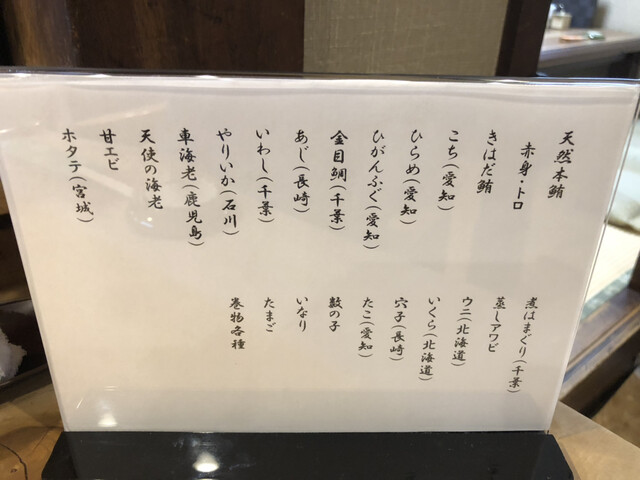 天然本鮪
赤身・トロ
きはだ鮪
こち(愛知)
ひらめ(愛知)
ひがんふぐ(愛知)
金目鯛(千葉)
あじ(長崎)
いわし(千葉)
やりいか(石川)
車海老(鹿児島)
天使の海老
甘エビ
ホタテ(宮城)
煮はまぐり(千葉)
蒸しアワビ
ウニ(北海道)
いくら(北海道)
穴子(長崎)
たこ(愛知)
数の子
いなり
たまご
巻物各種